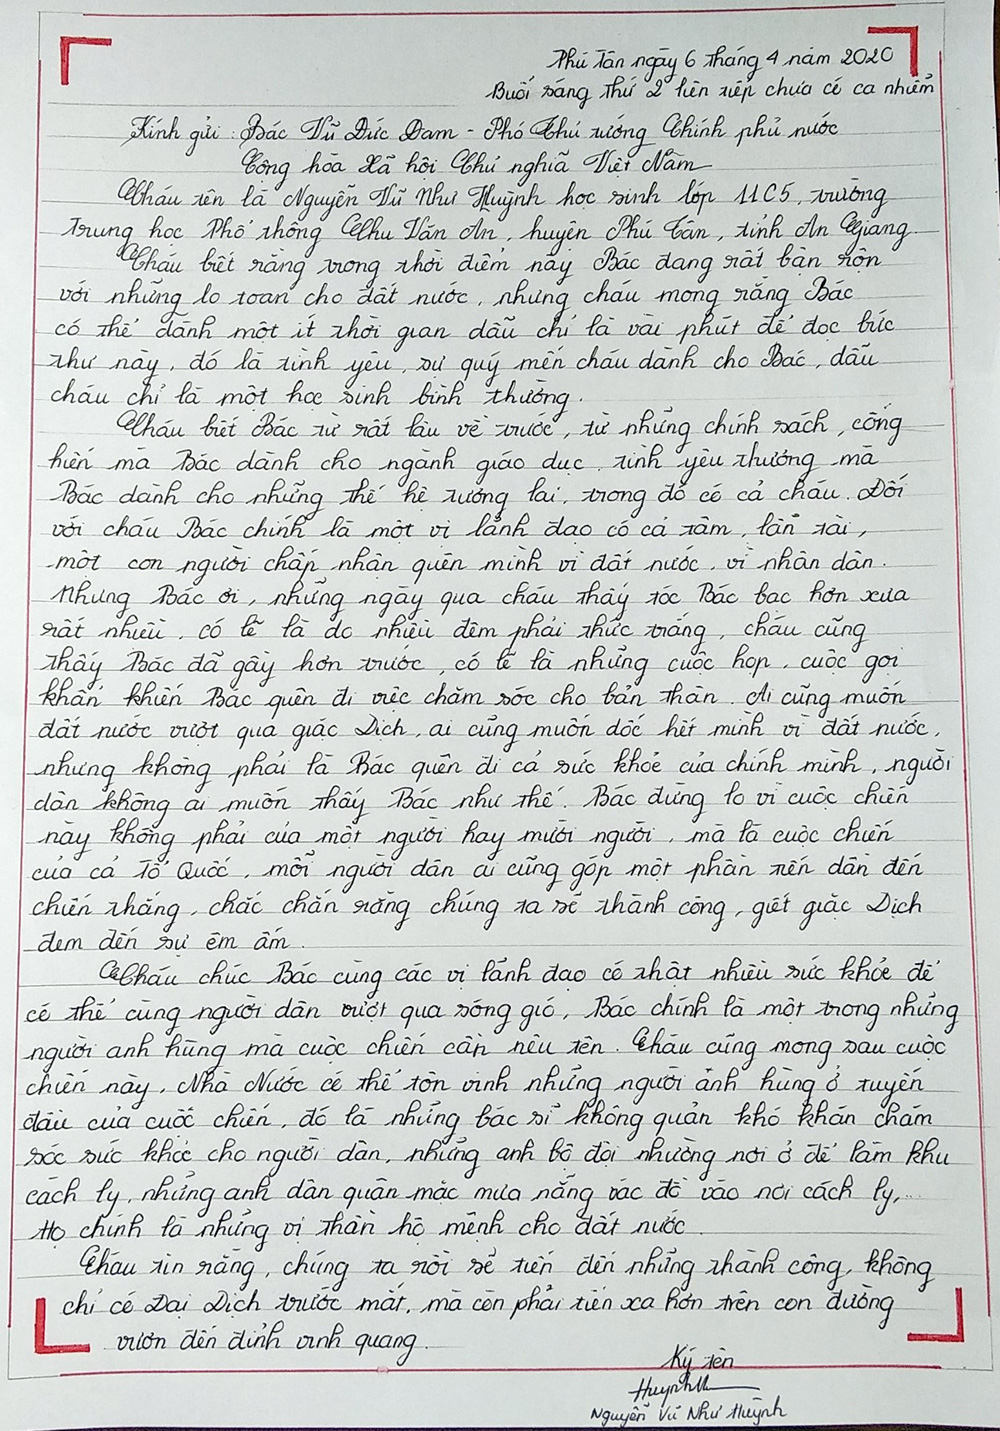 Phú Tân ngày 6 tháng 4 năm 2020
Buổi sáng thứ 2 liên tiếp chưa có ca nhiễm
Kính gửi: Bác Vũ Đức Đam - Phó Thủ tướng Chính phủ nước
Cộng hòa Xã hội Chủ nghĩa Việt Nam
Cháu tên là Nguyễn Vũ Như Huỳnh học sinh lớp 11C5, trường
Trung học Phổ thông Chu Văn An, huyện Phú Tân, tỉnh An Giang.
Cháu biết rằng trong thời điểm này Bác đang rất bận rộn
với những lo toan cho đất nước, nhưng cháu mong rằng Bác
có thể dành một ít thời gian dẫu chỉ là vài phút để đọc bức
thư này, đó là tình yêu, sự quý mến cháu dành cho Bác, dẫu
cháu chỉ là một học sinh bình thường.
Cháu biết Bác từ rất lâu về trước, từ những chính sách, cống
hiến mà Bác dành cho ngành giáo dục, tình yêu thương mà
Bác dành cho những thế hệ tương lai, trong đó có cả cháu. Đối
với cháu Bác chính là một vị lãnh đạo có cả tâm, lẫn tài,
một con người chấp nhận quên mình vì đất nước, vì nhân dân.
Nhưng Bác ơi, những ngày qua cháu thấy tóc Bác bạc hơn xưa
rất nhiều, có lẽ là do nhiều đêm phải thức trắng, cháu cũng
thấy Bác đã gầy hơn trước, có lẽ là những cuộc họp, cuộc gọi
khẩn khiến Bác quên đi việc chăm sóc cho bản thân. Ai cũng muốn
đất nước vượt qua giặc Dịch, ai cũng muốn dốc hết mình vì đất nước,
nhưng không phải là Bác quên đi cả sức khỏe của chính mình, người
dân không ai muốn thấy Bác như thế. Bác đừng lo vì cuộc chiến
này không phải của một người hay mười người, mà là cuộc chiến
của cả Tổ Quốc, mỗi người dân ai cũng góp một phần tiến dần đến
chiến thắng, chắc chắn rằng chúng ta sẽ thành công, giết giặc Dịch
đem đến sự êm ấm.
Cháu chúc Bác cùng các vị lãnh đạo có thật nhiều sức khỏe để
có thể cùng người dân vượt qua sóng gió, Bác chính là một trong những
người anh hùng mà cuộc chiến cần nêu tên. Cháu cũng mong sau cuộc
chiến này, Nhà Nước có thể tôn vinh những người ảnh hùng ở tuyến
đầu của cuốc chiến, đó là những bác sĩ không quản khó khăn chăm
sóc sức khỏe cho người dân, những anh bộ đội nhường nơi ở để làm khu
cách ly, những anh dân quân mặc mưa nắng vác đồ vào nơi cách ly,...
Họ chính là những vị thần hộ mệnh cho đất nước.
Cháu tin rằng, chúng ta rồi sẽ tiến đến những thành công, không
chỉ có Đại Dịch trước mắt, mà còn phải tiến xa hơn trên con đường
vươn đến đỉnh vinh quang.
Ký tên
Huỳnh
Nguyễn Vũ Như Huỳnh